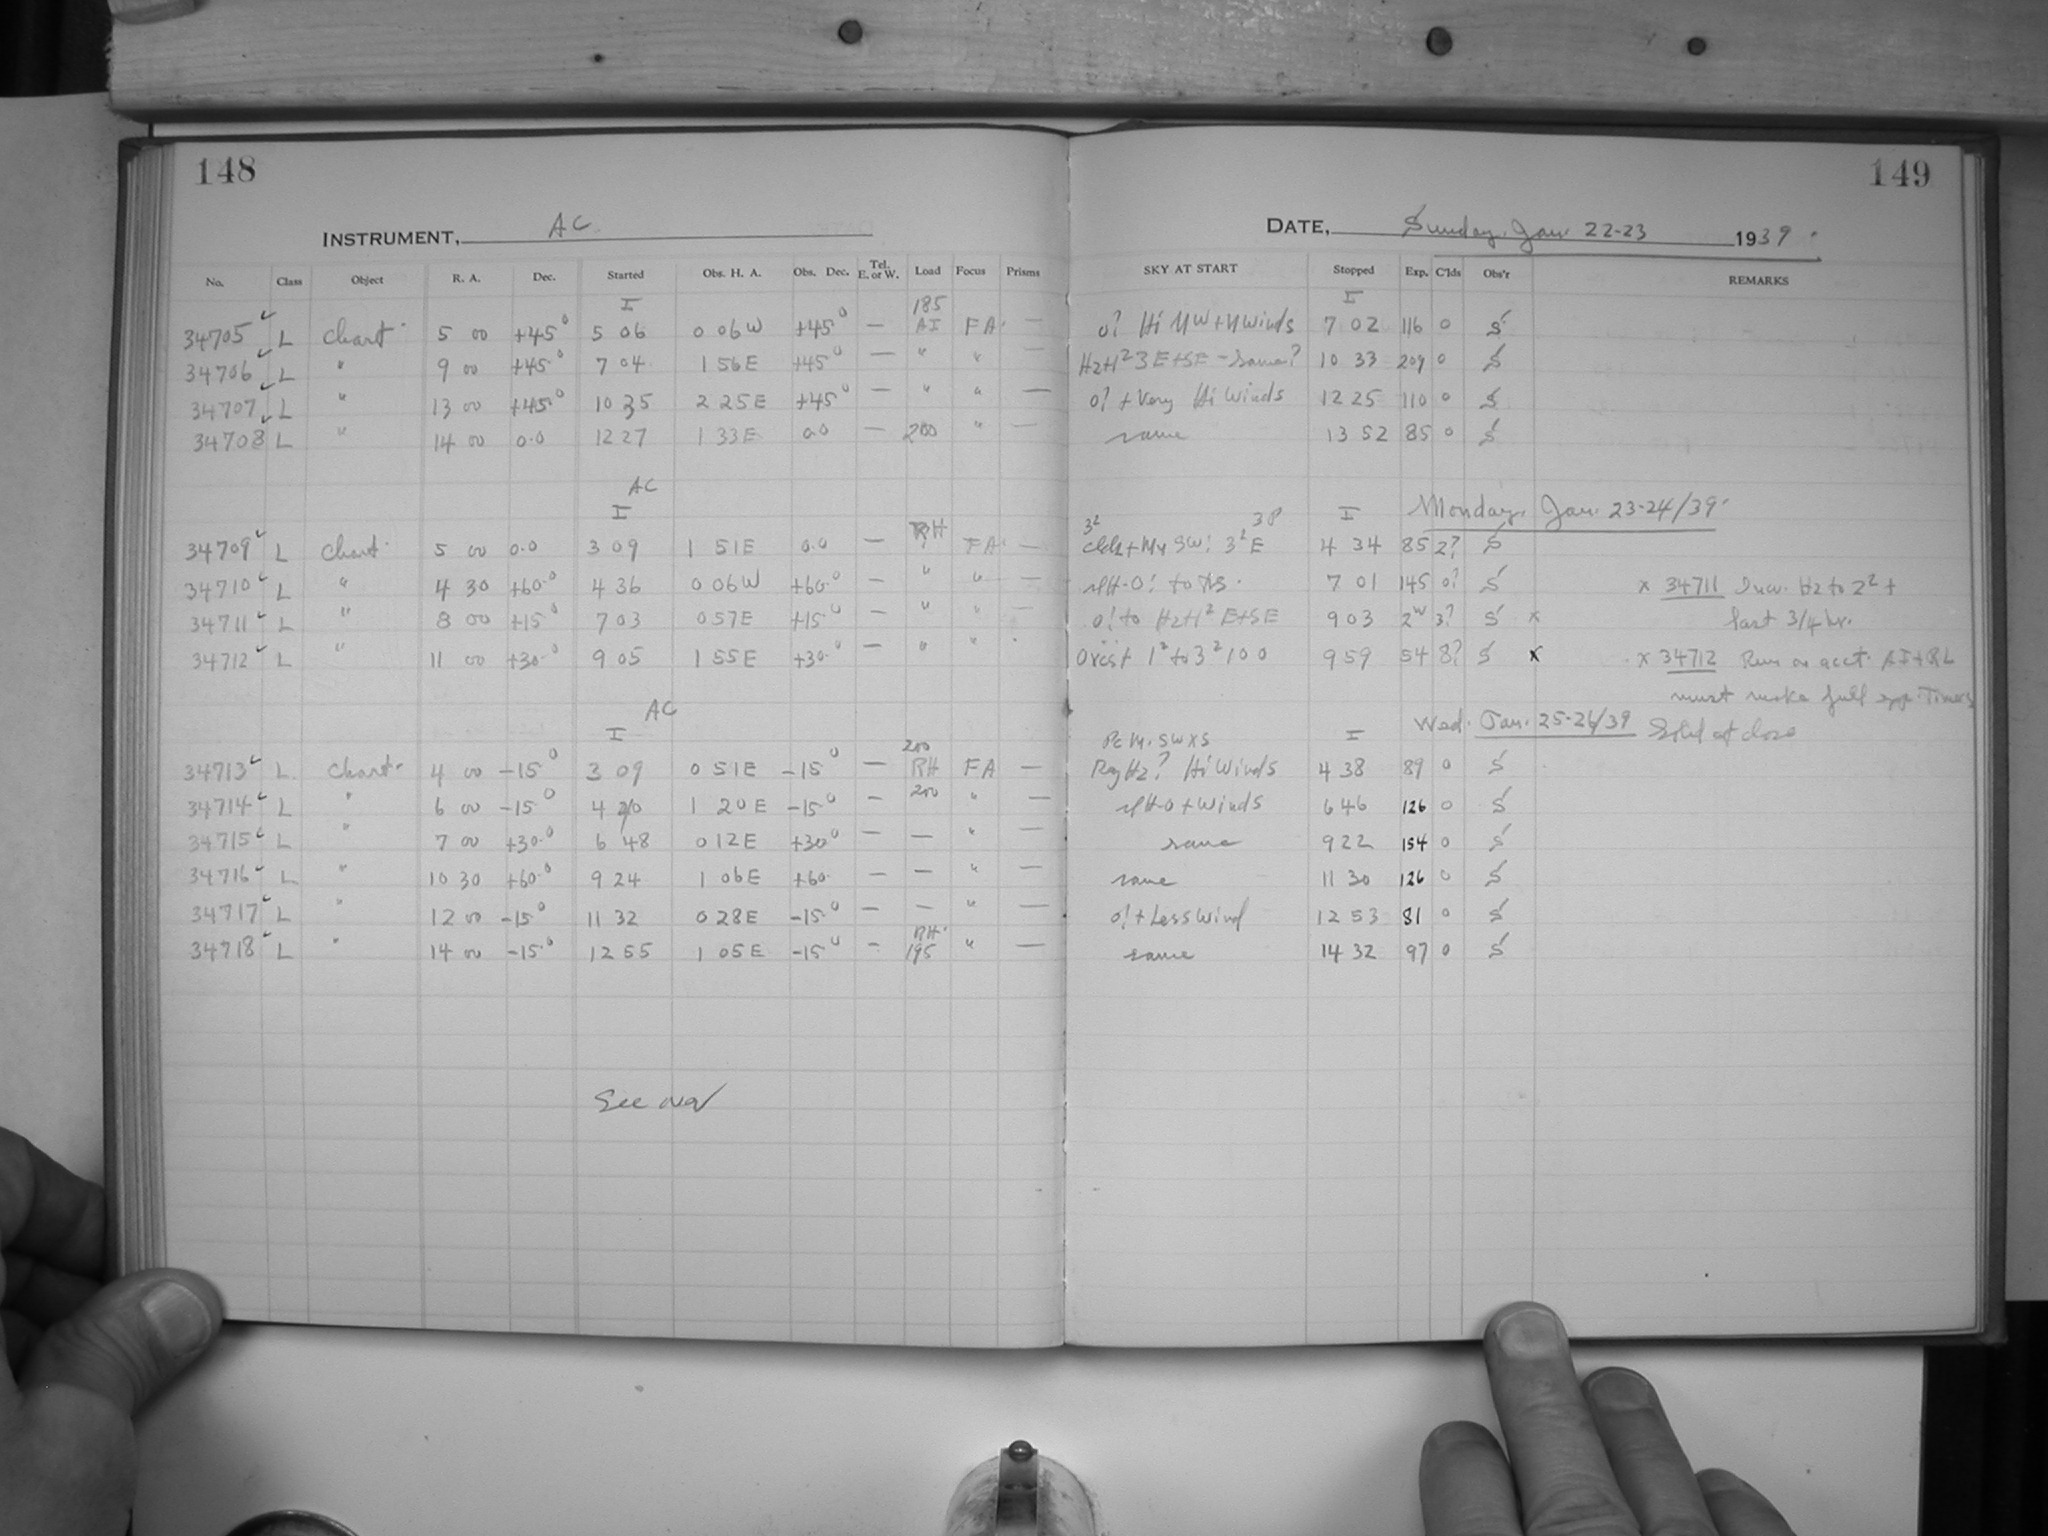 148
149
INSTRUMENT, AC
DATE, Sunday, Jan 22-23 1939.
No. Class Object R. A. Dec. Started Obs. H. A. Obs. Dec. Tel. E. or W. Load Focus Prisms SKY AT START Stopped Exp. C'lds Obs'r REMARKS
I 185 I
34705 ✓ L Chart 5 00 +45° 5 06 0 06W +45° — AI FA — 0? Hi NW+N Winds 7 02 116 0 S
34706 ✓ L " 9 00 +45° 7 04 1 56E +45° — " " Hz+H² 3 E+SE - same? 10 33 209 0 S
34707 ✓ L " 13 00 +45° 10 35 2 25E +45° — " " — 0? + Very Hi Winds 12 25 110 0 S
34708 L " 14 00 0.0 12 27 1 33E 0.0 — 200 " — same 13 52 85 0 S
AC
I I Monday, Jan. 23-24/39
34709 ✓ L Chart 5 00 0.0 3 09 1 51E 0.0 — RH FA — 3² SW! 3² E 4 34 85 2? S
34710 ✓ L " 4 30 +60° 4 36 0 06W +60° — " " — 7 01 145 0? S × 34711 Hz to 2² +
34711 ✓ L " 8 00 +15° 7 03 0 57E +15° — " " — 0! to Hz+H² E+SE 9 03 2? S × last 3/4 hr.
34712 ✓ L " 11 00 +30° 9 05 1 55E +30° — " " 1² to 3² 100 9 59 54 8? S × × 34712 Run on acct. AI+RL
must make full exp. Times
AC Wed. Jan. 25-26/39 Solid at close
I SW×S I
34713 ✓ L Chart 4 00 -15° 3 09 0 51E -15° — 200 RH FA — Hz? Hi Winds 4 38 89 0 S
34714 ✓ L " 6 00 -15° 4 40 1 20E -15° — 200 " — + Winds 6 46 126 0 S
34715 ✓ L " 7 00 +30° 6 48 0 12E +30° — — " — same 9 22 154 0 S
34716 ✓ L " 10 30 +60° 9 24 1 06E +60 — — " — same 11 30 126 0 S
34717 ✓ L " 12 00 -15° 11 32 0 28E -15° — — " — 0! + Less Wind 12 53 81 0 S
34718 ✓ L " 14 00 -15° 12 55 1 05E -15° — RH 195 " — same 14 32 97 0 S
See over